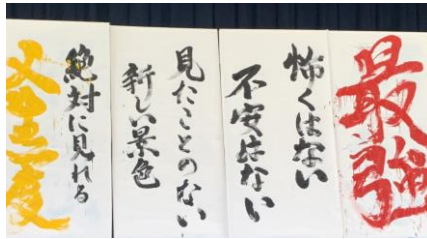 最強
怖くはない
不安はない
見たことのない
新しい景色
絶対に見れる